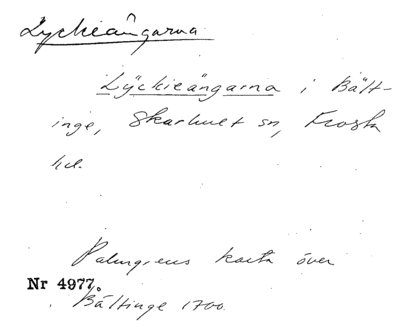 Lyckieängarna
Lÿckieängarna i Bält-
inge, Skarhult sn, Frosta
hd.
Palmgrens karta över
Nr 4977.
Bältinge 1700.